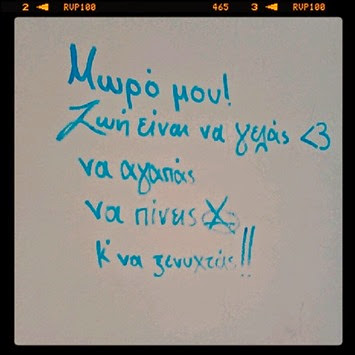 2 RVP100 465 3 RVP100
Μωρό μου!
Ζωή είναι να γελάς <3
να αγαπάς
να πίνεις
κ' να ξενυχτάς!!